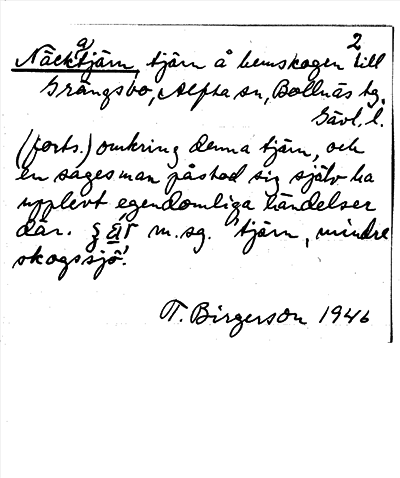 Näck^atjärn, tjärn å hemskogen ²till
Grängsbo, Alfta sn, Bollnäs tg.
Gävl. l.
(forts.) omkring denna tjärn, och
en sagesman påstod sig själv ha
upplevt egendomliga händelser
där. m.sg. "tjärn, mindre
skogssjö".
T. Birgerson 1946